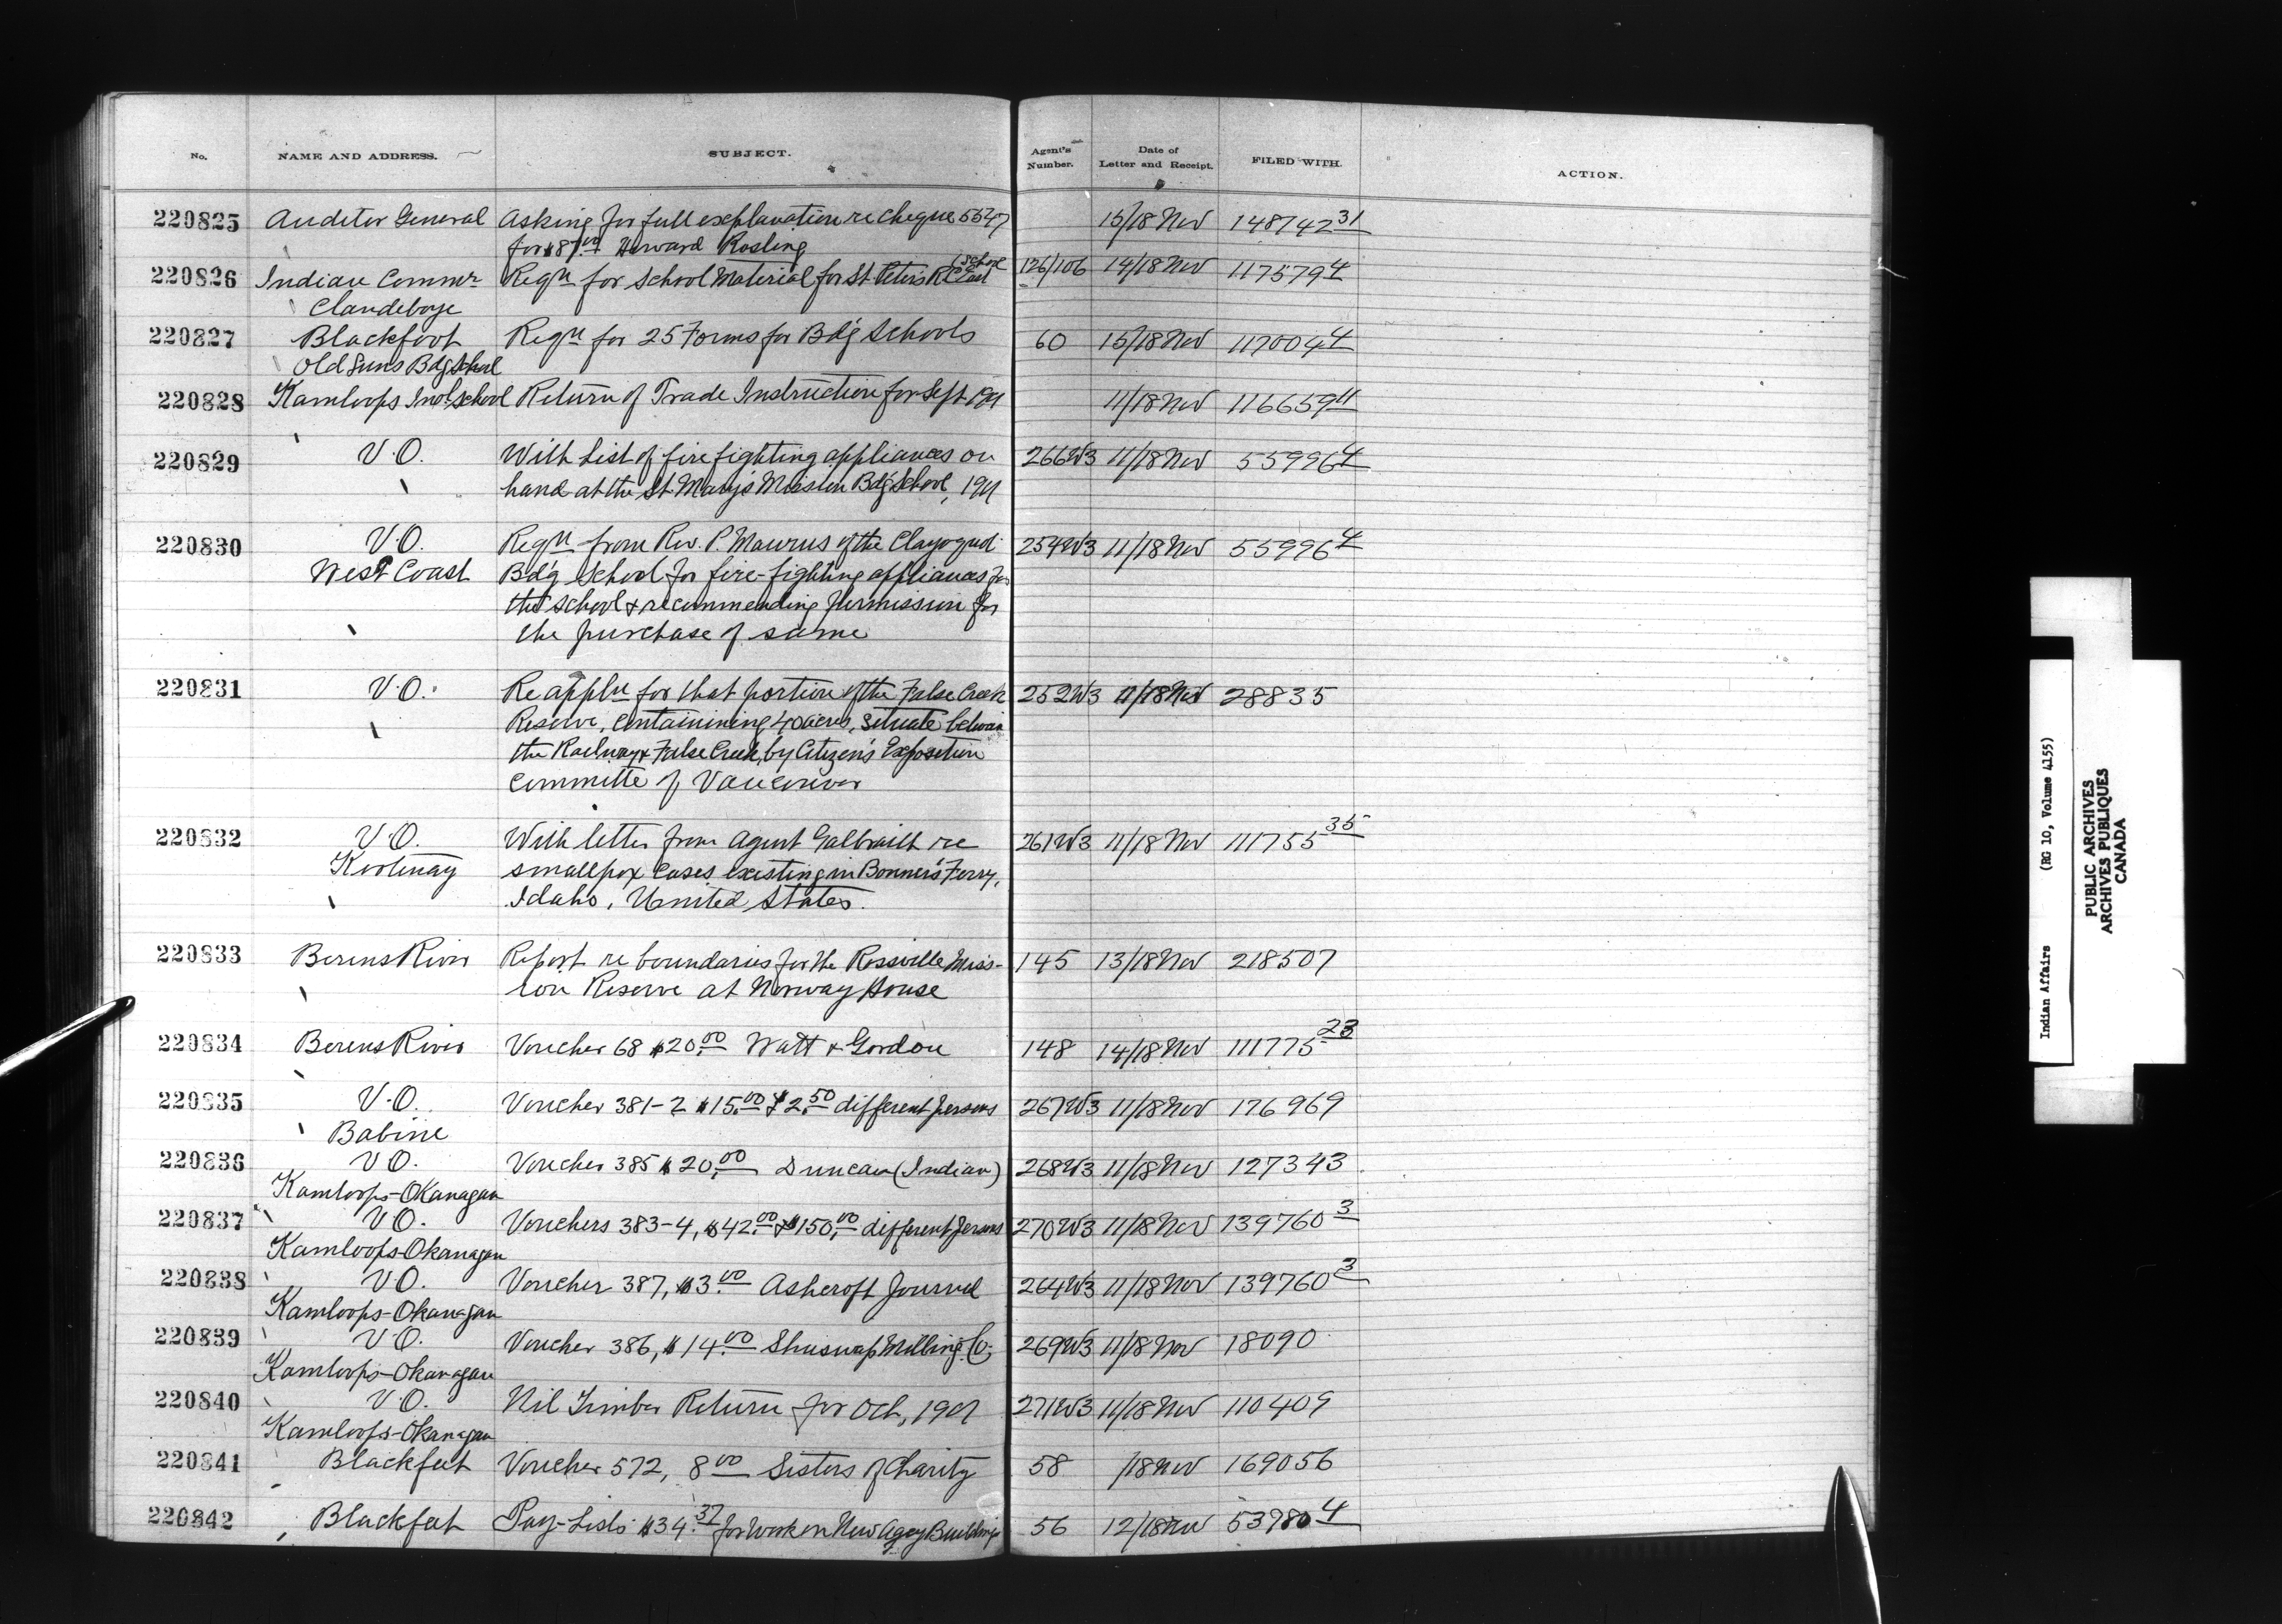 No. NAME AND ADDRESS. SUBJECT. Agent's Number. Date of Letter and Receipt. FILED WITH. ACTION.
220825 Auditor General Asking for full explanation re cheque 5547 15/18 Nov 148742 31
for $87.00 Howard Rosling
220826 Indian Commr Reqn for School Material for St. Peter's R.C. East School 126/106 14/18 Nov 117579 4
Clandeboye
220827 Blackfoot Reqn for 25 Forms for Bd'g Schools 60 15/18 Nov 117004 4
Old Suns Bdg School
220828 Kamloops Indl School Return of Trade Instruction for Sept 1901 11/18 Nov 116659 11
220829 V.O. With List of fire fighting appliances on 266W3 11/18 Nov 55996 4
hand at the St. Mary's Mission Bd'g School, 1901
220830 V.O. Reqn from Rev. P. Maurus of the Clayoquot 254W3 11/18 Nov 55996 4
West Coast Bd'g School for fire-fighting appliances for
the school & recommending permission for
the purchase of same
220831 V.O. Re appln for that portion of the False Creek 252W3 11/18 Nov 28835
Reserve, containining 40 acres, situate between
the Railway & False Creek, by Citizen's Exposition
Committe of Vancouver
220832 V.O. With letter from Agent Galbraith re 261W3 11/18 Nov 111755 35
Kootenay smallpox cases existing in Bonner's Ferry,
Idaho, United States.
220833 Berens River Report re boundaries for the Rossville Miss- 145 13/18 Nov 218507
ion Reserve at Norway House
220834 Berens River Voucher 68 $20.00 Watt & Gordon 148 14/18 Nov 111775 23
220835 V.O. Voucher 381-2 $15.00 & $2.50 different persons 267W3 11/18 Nov 176969
Babine
220836 V.O. Voucher 385 $20.00 Duncan (Indian) 268W3 11/18 Nov 127343
Kamloops-Okanagan
220837 V.O. Vouchers 383-4, $42.00 & $150.00 different persons 270W3 11/18 Nov 139760 3
Kamloops-Okanagan
220838 V.O. Voucher 387, $3.00 Ashcroft Journal 264W3 11/18 Nov 139760 3
Kamloops-Okanagan
220839 V.O. Voucher 386, $14.00 Shuswap Milling Co. 269W3 11/18 Nov 18090
Kamloops-Okanagan
220840 V.O. Nil Timber Return for Oct, 1901 271W3 11/18 Nov 110409
Kamloops-Okanagan
220841 Blackfeet Voucher 572, 8.00 Sisters of Charity 58 /18 Nov 169056
220842 Blackfeet Pay-Lists $34.37 for Work on New Agcy Buildings 56 12/18 Nov 53980 4
Indian Affairs (RG 10, Volume 4155)
PUBLIC ARCHIVES
ARCHIVES PUBLIQUES
CANADA